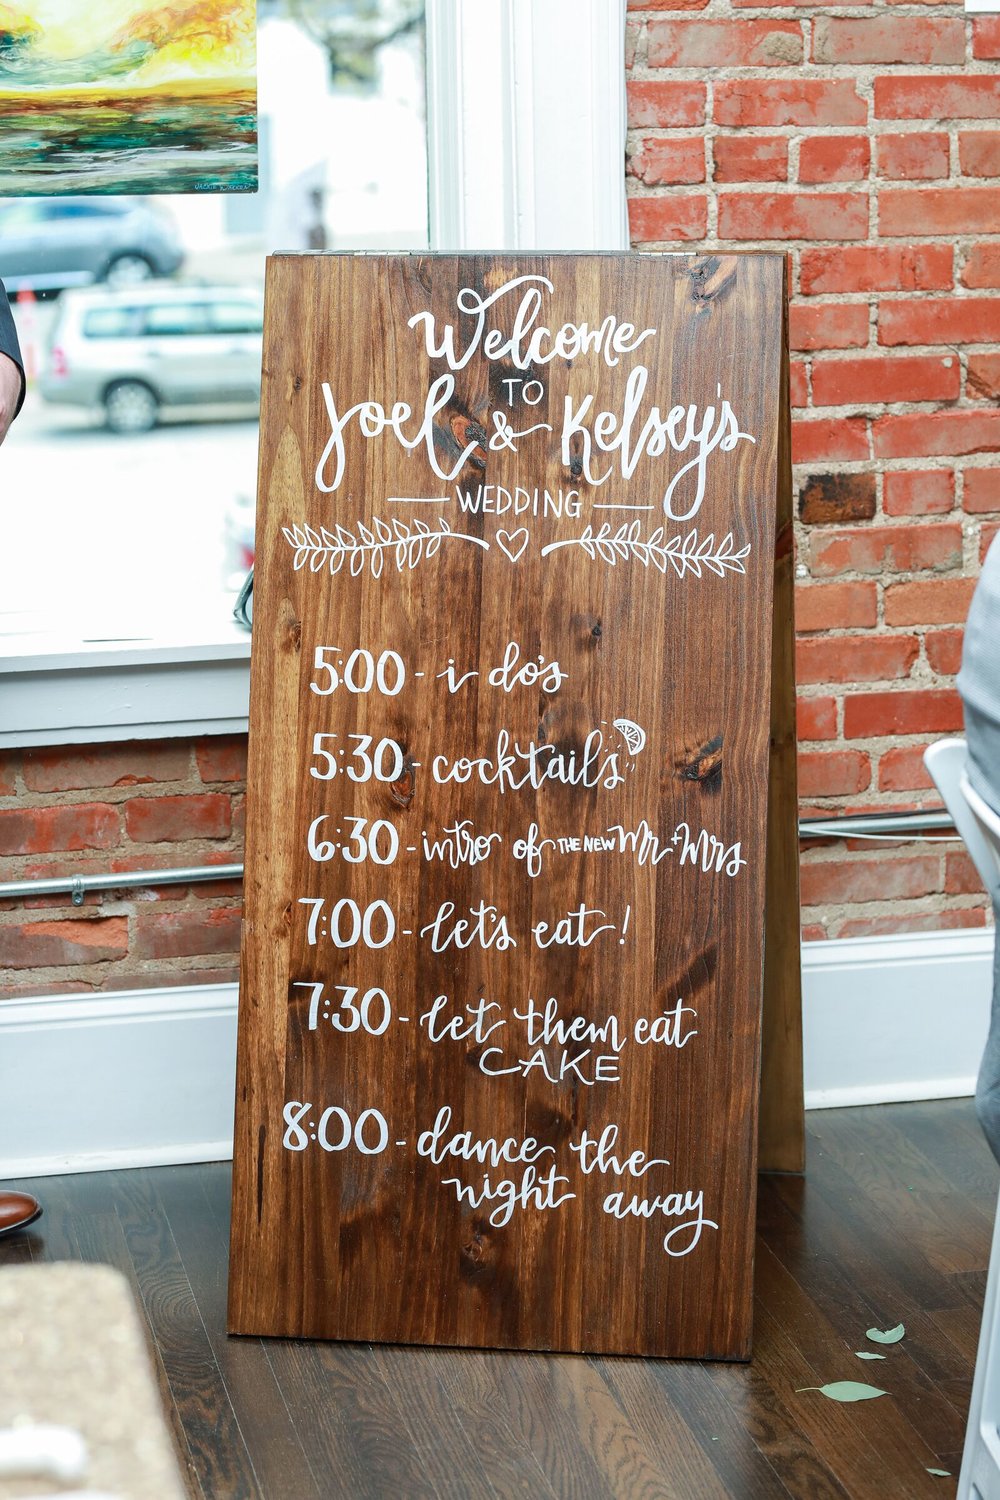 JACKIE WALKEN
Welcome
TO
Joel & Kelsey's
WEDDING
5:00 - i do's
5:30 - cocktails
6:30 - intro of THE NEW Mr + Mrs
7:00 - let's eat!
7:30 - let them eat
CAKE
8:00 - dance the
night away